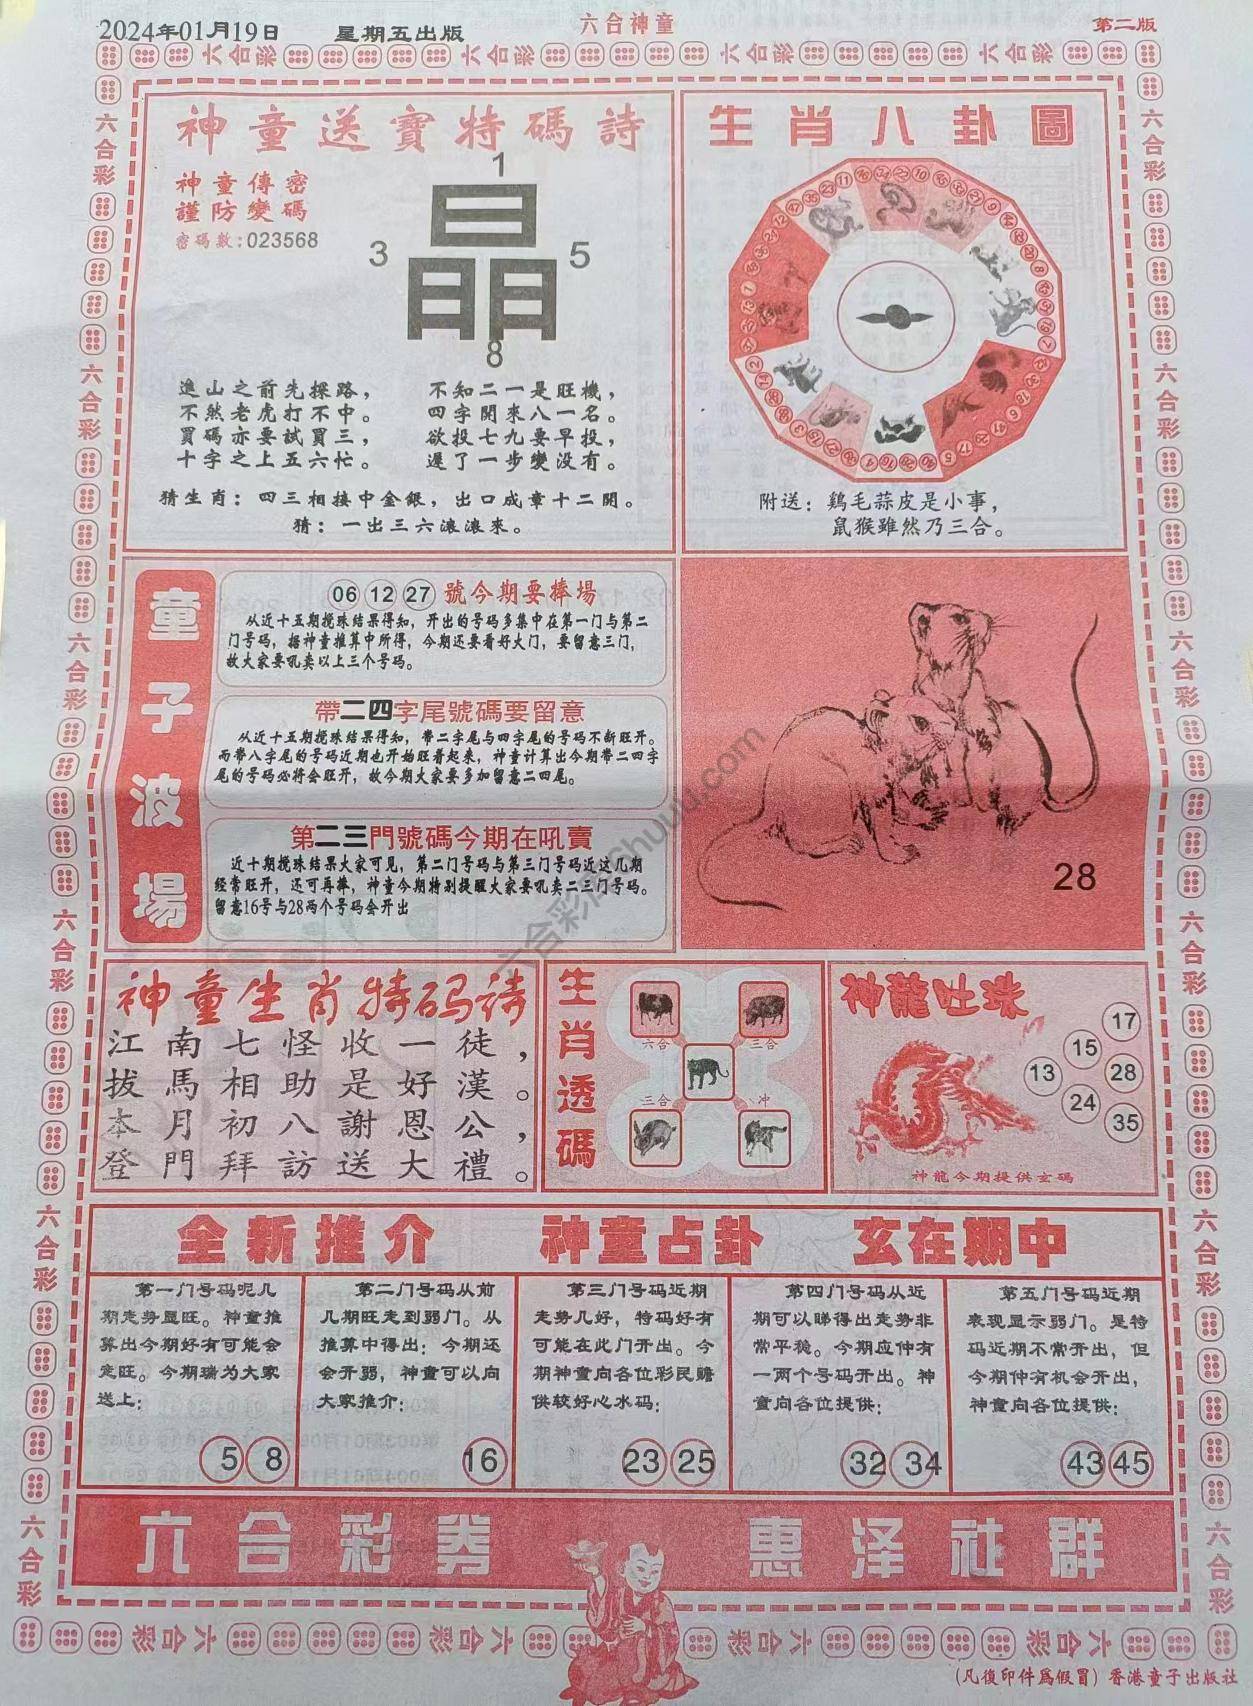 2024年01月19日
星期五出版
六合神童
第二版
神童送寶特碼詩
神童傳密
謹防變碼
密碼數:023568
1
晶
3
5
8
進山之前先探路，
不然老虎打不中。
買碼亦要試買三，
十字之上五六忙。
不知二一是旺機，
四字開來八一名。
欲投七九要早投，
遲了一步變没有。
猜生肖：四三相接中金銀，出口成章十二開。
猜：一出三六滚滚來。
生肖八卦圖
附送：鷄毛蒜皮是小事，
鼠猴雖然乃三合。
童子波場
06 12 27 號今期要捧場
从近十五期搅珠结果得知，开出的号码多集中在第一门与第二
门号码，据神童推算中所得，今期还要看好大门，要留意三门，
故大家要吼卖以上三个号码。
帶二四字尾號碼要留意
从近十五期搅珠结果得知，带二字尾与四字尾的号码不断旺开。
而带八字尾的号码近期也开始旺着起来，神童计算出今期带二四字
尾的号码必将会旺开，故今期大家要多加留意二四尾。
第二三門號碼今期在吼賣
近十期搅珠结果大家可见，第二门号码与第三门号码近这几期
经常旺开，还可再捧，神童今期特别提醒大家要吼卖二三门号码。
留意16号与28两个号码会开出
28
六合彩 shuuu.com
神童生肖特码詩
江南七怪收一徒，
拔馬相助是好漢。
本月初八謝恩公，
登門拜訪送大禮。
生肖透碼
六合
三合
三合
冲
神龍吐珠
17
15
13
28
24
35
神龍今期提供玄碼
全新推介
神童占卦
玄在期中
第一门号码呢几
期走势显旺。神童推
算出今期好有可能会
走旺。今期瑞为大家
送上：
5 8
第二门号码从前
几期旺走到弱门。从
推算中得出：今期还
会开弱，神童可以向
大家推介：
16
第三门号码近期
走势几好，特码好有
可能在此门开出。今
期神童向各位彩民赡
供较好心水码：
23 25
第四门号码从近
期可以睇得出走势非
常平稳。今期应仲有
一两个号码开出。神
童向各位提供：
32 34
第五门号码近期
表现显示弱门。是特
码近期不常开出，但
今期仲有机会开出，
神童向各位提供：
43 45
六合彩券
惠泽社群
六合彩
六合彩
六合彩
六合彩
(凡復印件爲假冒) 香港童子出版社